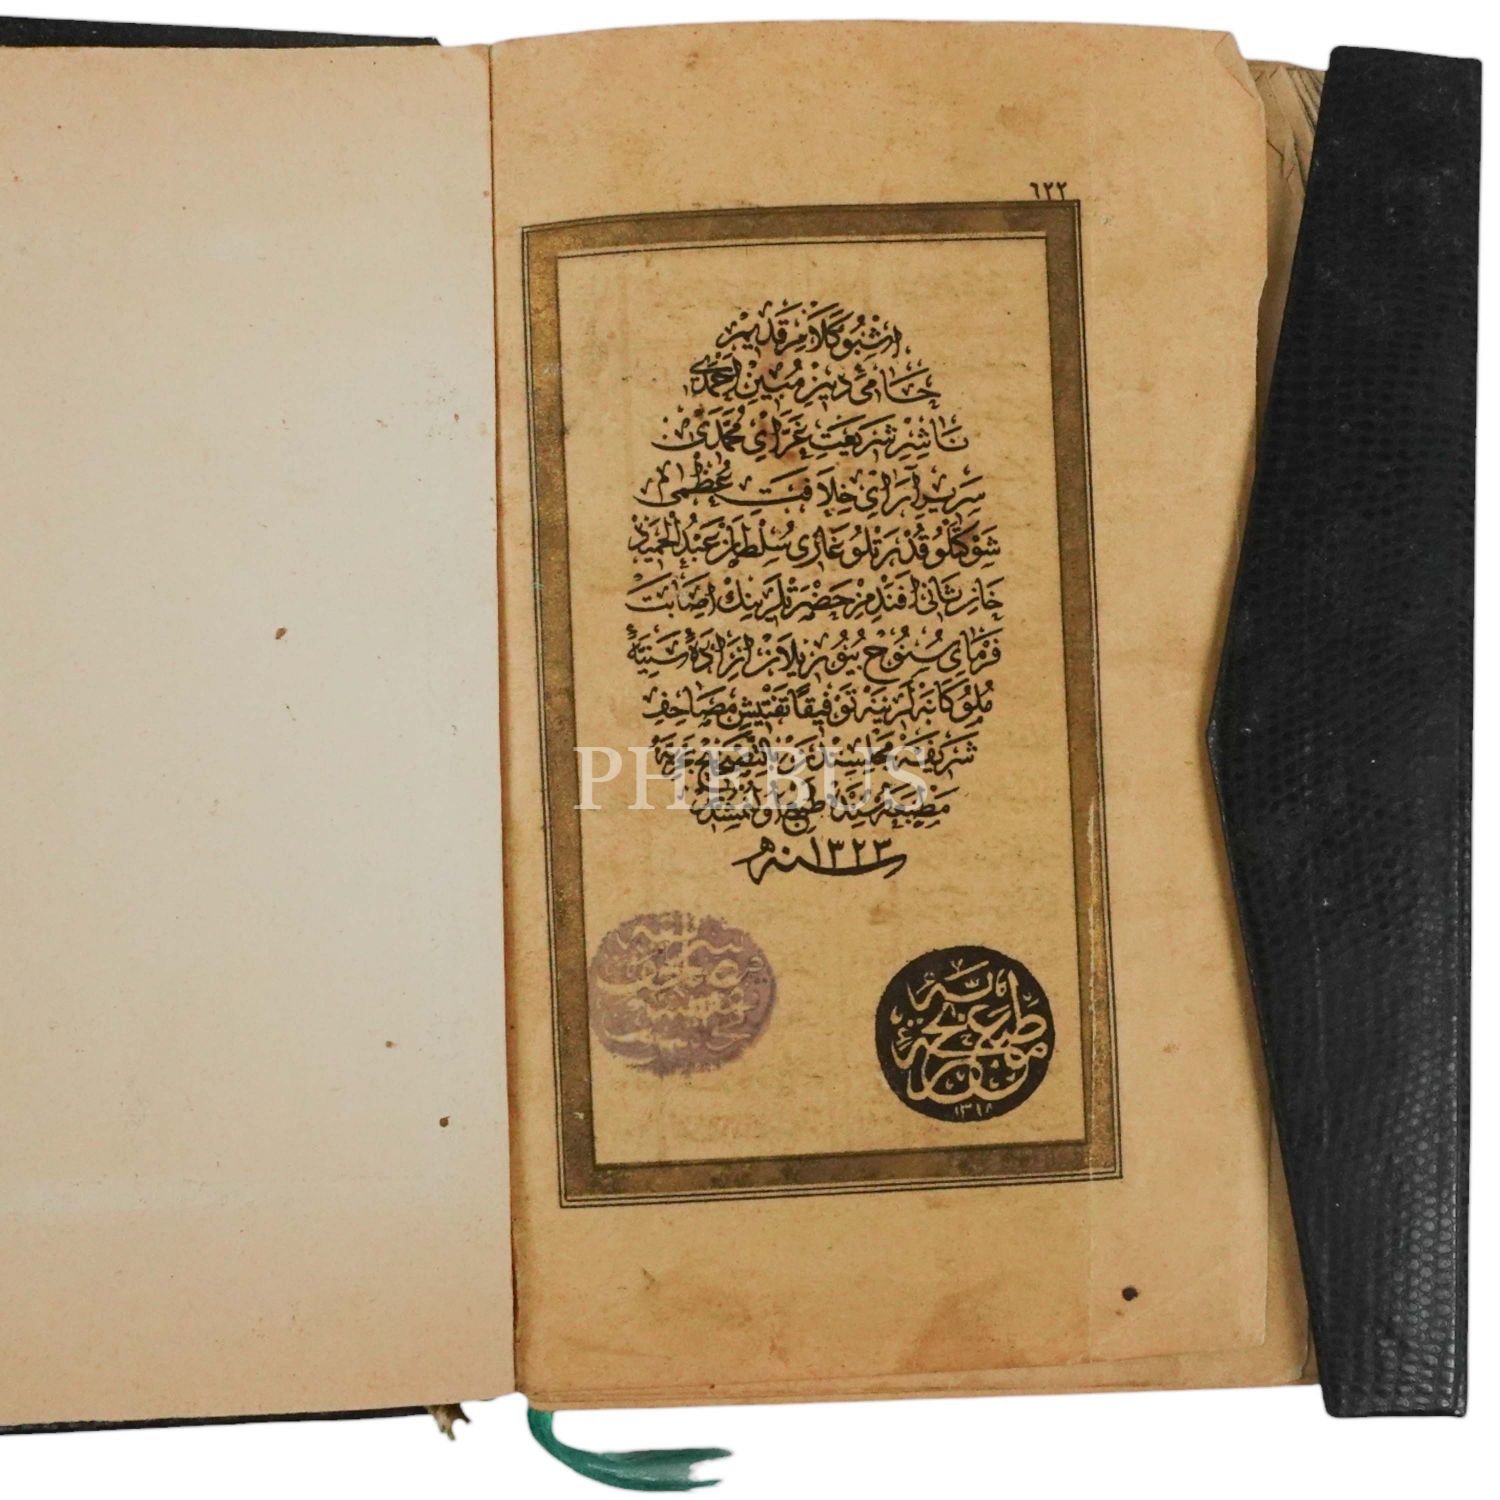 ٦٢٢
اشبو كلام قديم
حامئ دين مبين احمدى
ناشر شريعت غراى محمدى
سرير آراى خلافت عظمى
شوكتلو قدرتلو غازى سلطان عبد الحميد
خان ثانى افندمز حضرتلرينك اصابت
فرماى سنوح بيوريلان ارادۀ سنيۀ
ملوكانه لرينه توفيقا تفتيش مصاحف
شريفه مجلسندن بالتصحيح بحريه
مطبعه سنده طبع اولنمشدر
سنه ١٣٢٣
PHEBUS
مطبعه بحريه
١٣١٨